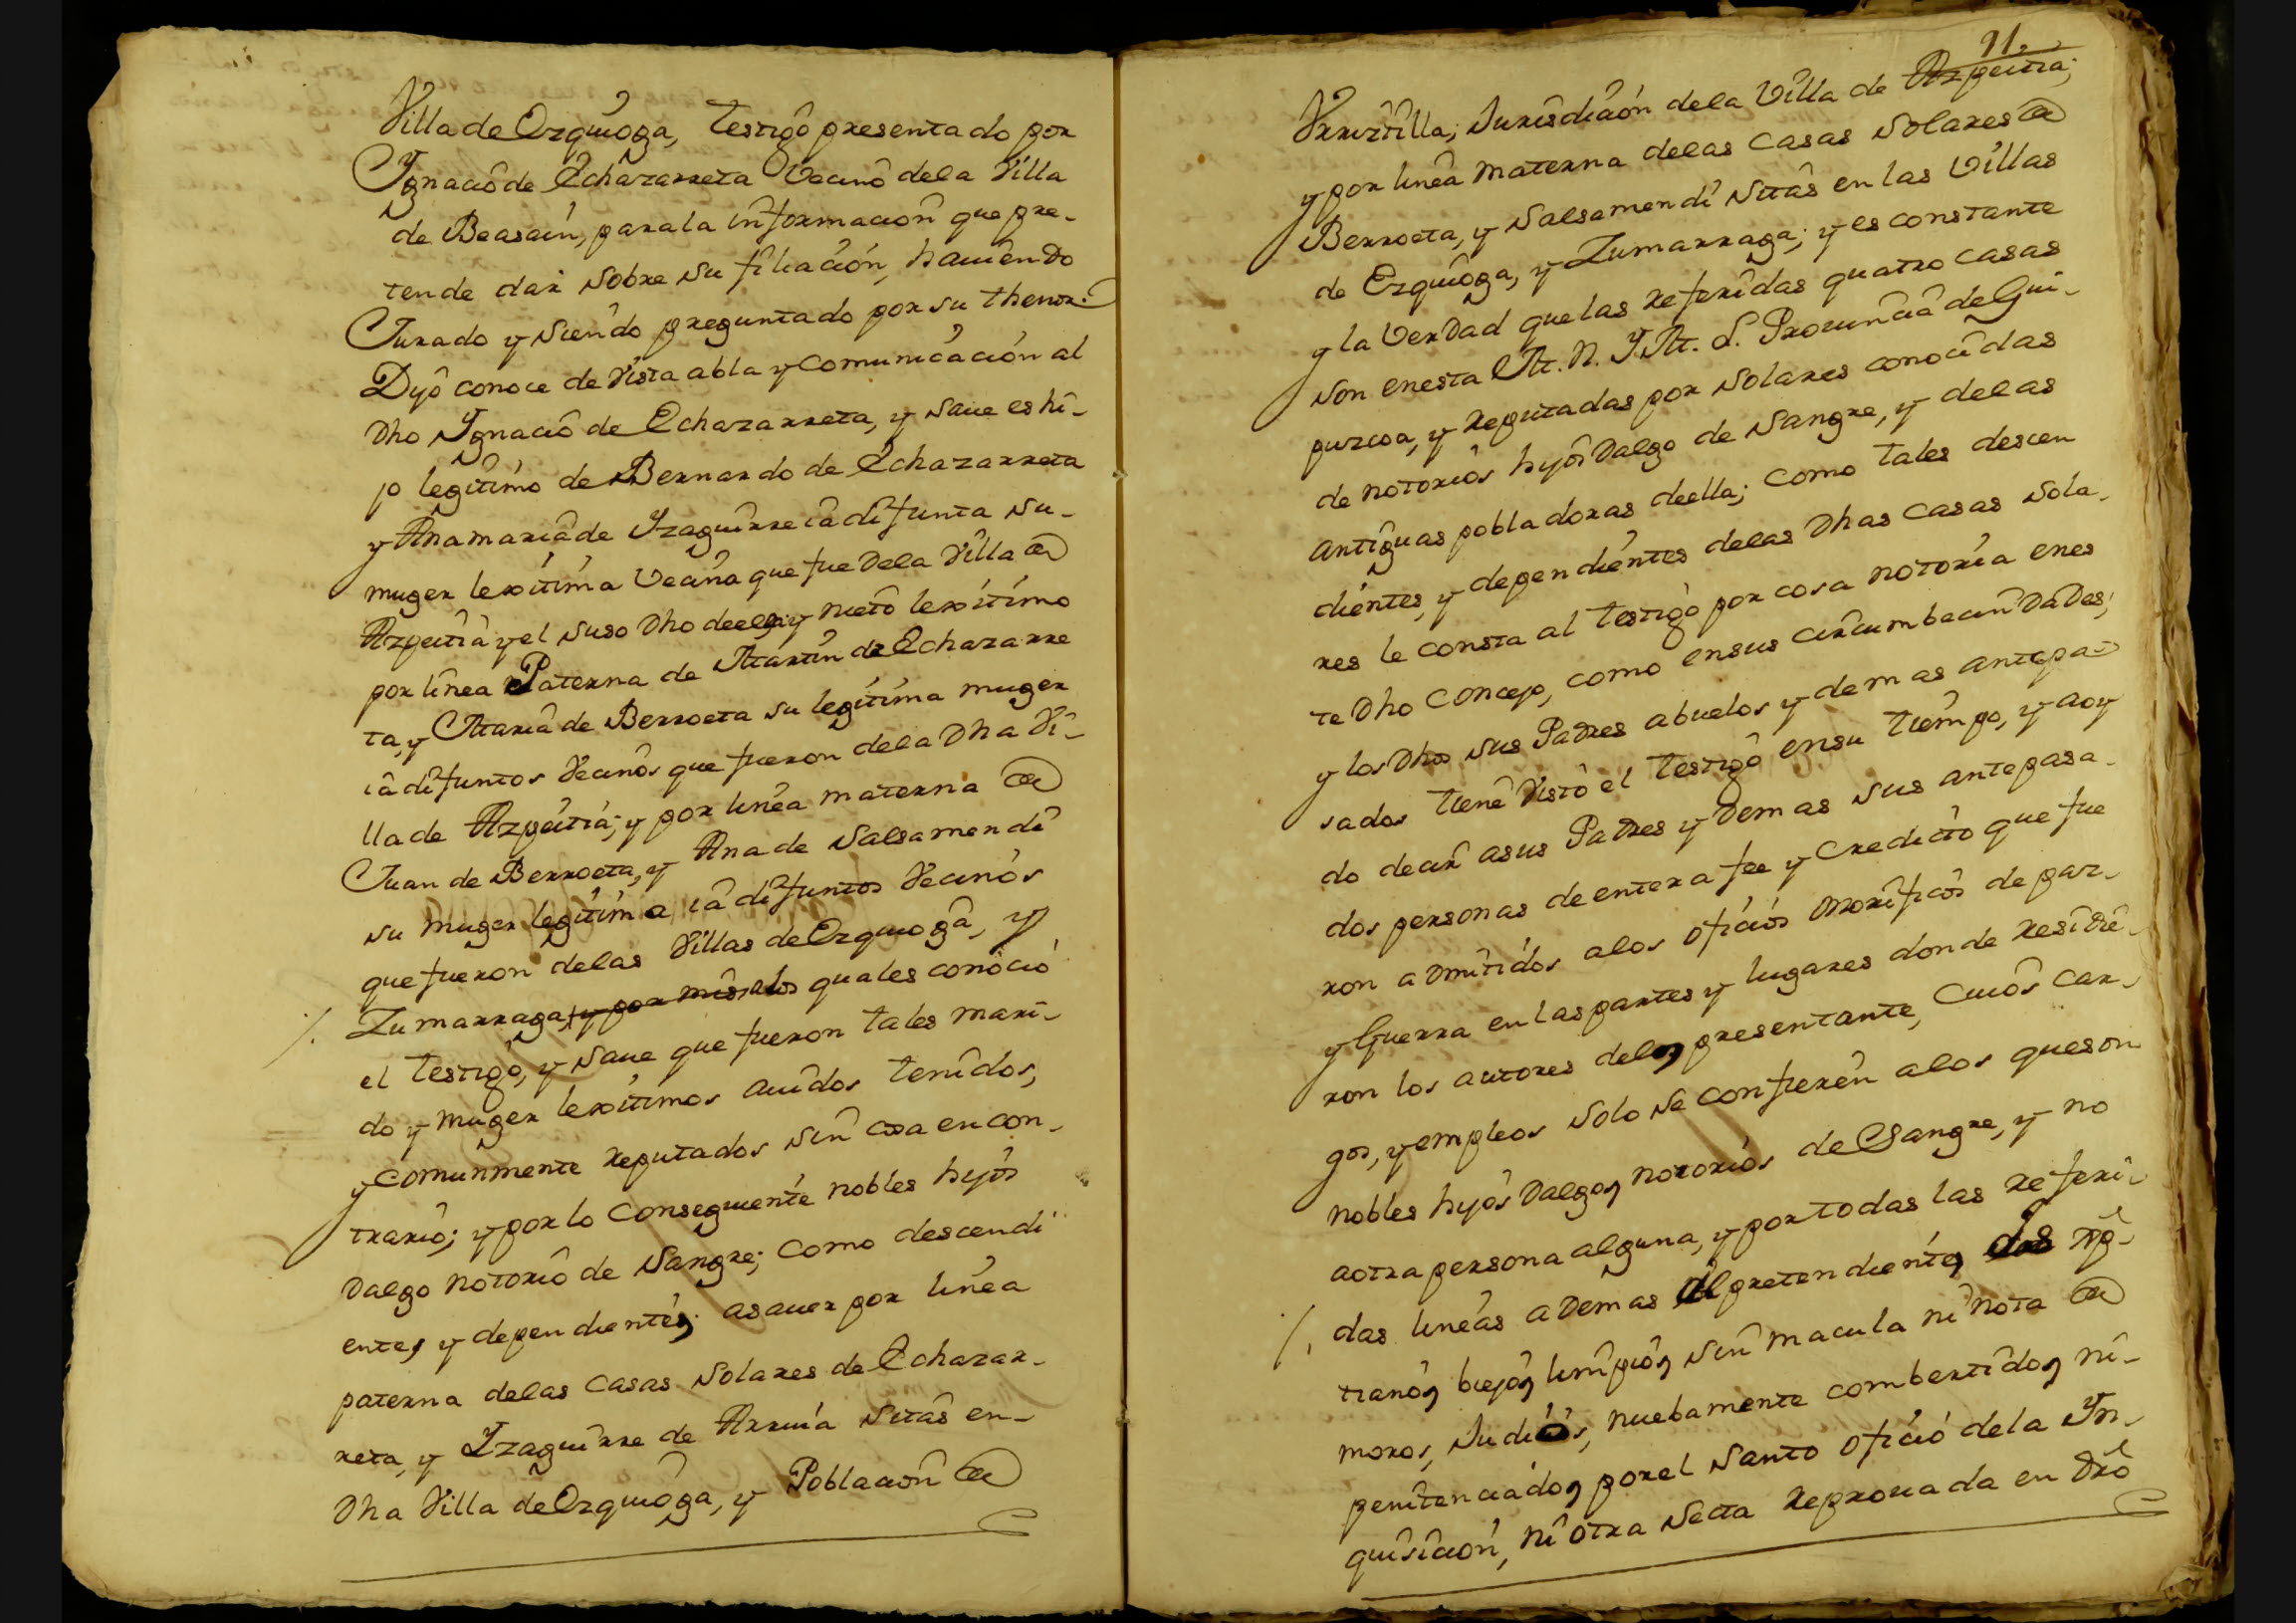 Villa de Ezquioga, testigo presentado por
Ygnacio de Echazarreta Vecino dela Villa
de Beasain, parala informacion que pre-
tende dar sobre su filiación, haviendo
Jurado y siendo preguntado por su thenor.
Dijo conoce de vista abla y comunicación al
Dho Ygnacio de Echazarreta, y save es hi-
jo legitimo de Bernardo de Echazarreta
y Anamaria de Yzaguirre ia difunta su-
muger lexitima Vecina que fue dela Villa de
Azpeitia y el suso Dho deella; y nieto lexitimo
por linea Paterna de Martin de Echazarre
ta, y Maria de Berroeta su legitima muger
ia difuntos Vecinos que fueron dela Dha Vi-
lla de Azpeitia; y por linea materna de
Juan de Berroeta, y Ana de Salsamendi
su muger legitima ia difuntos Vecinos
que fueron delas Villas de Ezquioga, y
/. Zumarraga, y por mis, alos quales conoció
el testigo, y save que fueron tales mari-
do y muger lexitimos avidos tenidos,
y comunmente reputados sin cosa en con-
trario; y por lo Conseguiente nobles hijos
Dalgo notorio de Sangre; Como descendi
entes y dependientes; asaver por linea
paterna delas Casas Solares de Echazar-
reta, y Yzaguirre de Arruia sitas en-
Dha Villa de Ezquioga, y Poblacion de
91.
Urrestilla; Jurisdicion dela Villa de Azpeitia;
y por linea materna delas Casas Solares de
Berroeta, y Salsamendi sitas en las Villas
de Ezquioga, y Zumarraga; y es constante
y la Verdad que las referidas quatro Casas
son enesta M. N. Y M. L. Provincia de Gui-
puzcoa, y reputadas por solares conocidas
de notorios hijos Dalgo de Sangre, y delas
antiguas pobladoras deella; Como tales descen
dientes, y dependientes delas Dhas Casas Sola-
res le consta al testigo por cosa notoria enes
te Dho Concejo, como ensus circumbecindades;
y los Dhos sus Padres abuelos y demas antepa-
sados tiene visto el testigo ensu tiempo, y aoy
do decir asus Padres y demas sus antepasa-
dos personas de entera fee y Credicto que fue
ron admitidos alos oficios onorificos de paz-
y Guerra en las partes y lugares donde residie-
ron los autores del presentante, Cuios Car-
gos, y empleos solo se confieren alos que son
nobles hijos Dalgos notorios de Sangre, y no
aotra persona alguna, y por todas las referi-
/. das lineas a Demas del pretendiente, xp-
tianos biejos limpios sin macula ni nota de
moros, Judios, nuebamente combertidos ni-
penitenciados por el Santo oficio dela Yn-
quisicion, ni otra Secta reprovada en Dro